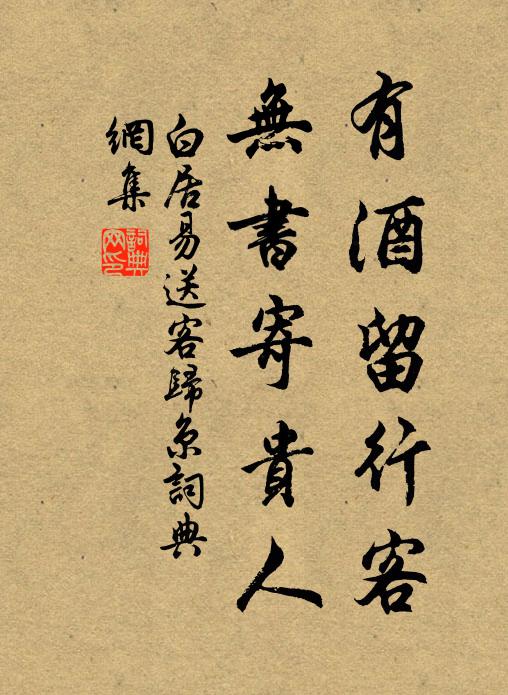 有酒留行客
無書寄貴人
白居易送客歸京詞典
網集
詞典網印